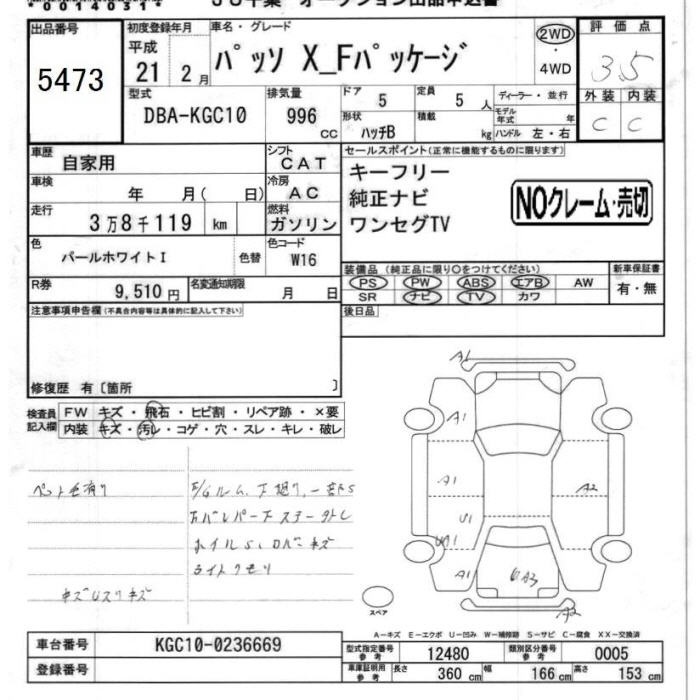 *00140331*
出品番号
5473
初度登録年月
平成
21 2月
車名・グレード
パッソ X_Fパッケージ
2WD
・
4WD
評価点
3.5
外装 内装
C C
型式
DBA-KGC10
排気量
996 cc
ドア 5
定員 5 人
ディーラー・並行
モデル年式 年
形状 ハッチB
積載 kg
ハンドル 左・右
車歴
自家用
シフト
CAT
車検
年 月( 日)
冷房
AC
走行
3万8千119 km
燃料
ガソリン
色
パールホワイトI
色替
色コード
W16
R券
9,510円
名変通知期限
月 日
セールスポイント(正常に機能するものに限ります)
キーフリー
純正ナビ
ワンセグTV
NOクレーム・売切
装備品(純正品に限り○をつけてください)
PS PW ABS エアB AW
SR ナビ TV カワ
新車保証書
有・無
後日品
注意事項申告欄(不具合内容等は具体的に記入して下さい)
修復歴 有〔箇所 〕
検査員記入欄
FW キズ・飛石・ヒビ割・リペア跡・×要
内装 キズ・汚レ・コゲ・穴・スレ・キレ・破レ
ホイルS
ライトクモリ
A1
A1
A1
A2
U1
A1
A2
スペア
A-キズ E-エクボ U-凹み W-補修跡 S-サビ C-腐食 XX-交換済
車台番号
KGC10-0236669
登録番号
型式指定番号参考
12480
類別区分番号参考
0005
車庫証明用参考
長さ 360 cm
幅 166 cm
高さ 153 cm